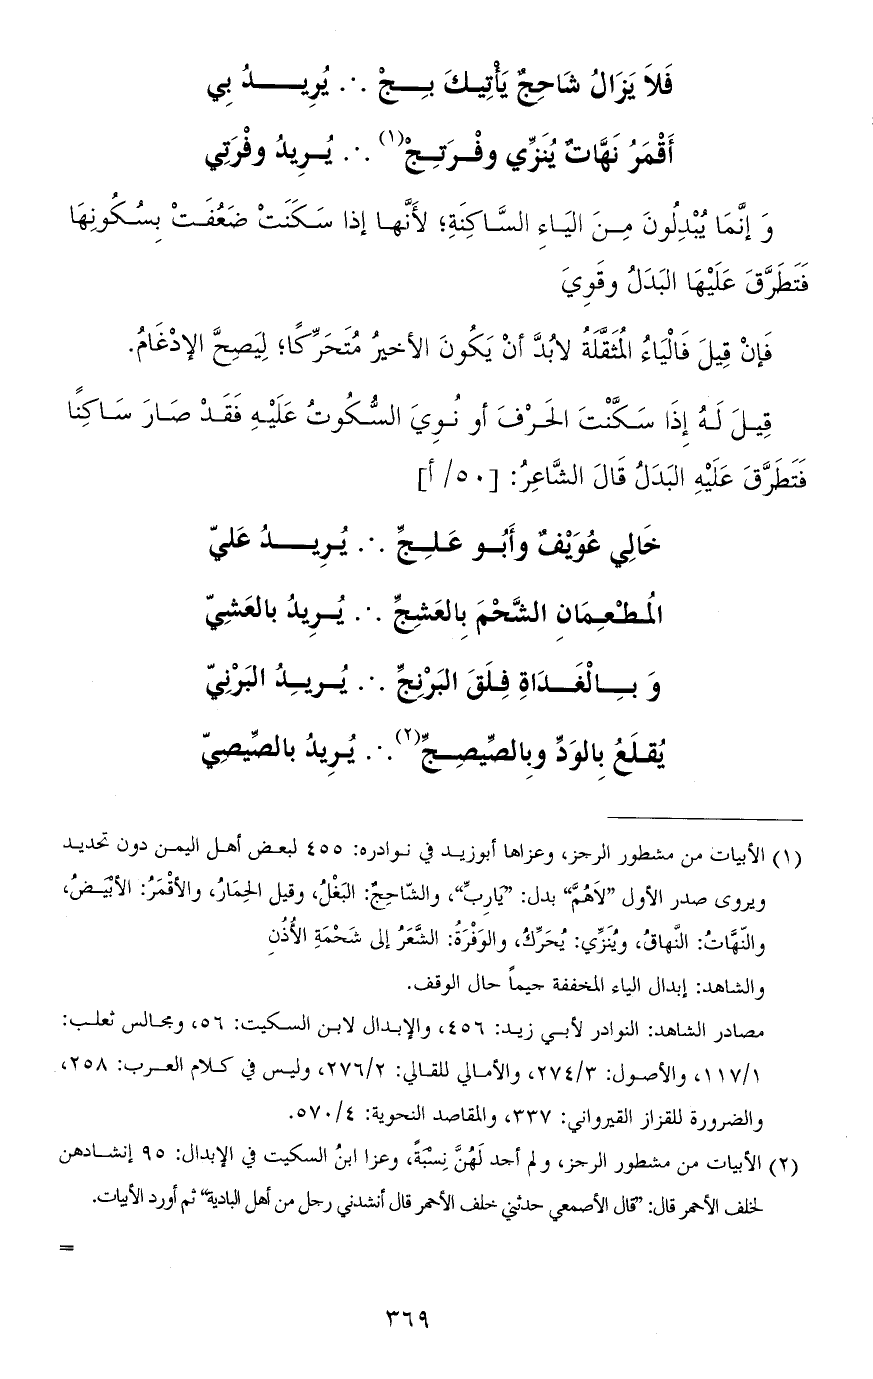 فَلاَ يَزَالُ شَاحِجٌ يَأْتِيكَ بِـجْ ∴ يُرِيـــدُ بِي
أَقْمَرُ نَهَّاتٌ يُنَزِّي وفْـرَتِـجْ(١) ∴ يُـرِيدُ وفْرَتِي
وَ إنَّمَا يُبْدِلُونَ مِـنَ اليَـاءِ السَّـاكِنَةِ؛ لأَنَّهـا إذا سَـكَنَتْ ضَعُفَـتْ بِسُـكُونِهَا
فَتَطَرَّقَ عَلَيْهَا البَدَلُ وقَوِيَ
فَإنْ قِيلَ فَالْيَاءُ المُثَقَّلَةُ لابُدَّ أنْ يَكُونَ الأخيرُ مُتَحَرِّكًا؛ لِيَصِحَّ الإدْغَامُ.
قِيـلَ لَـهُ إذَا سَـكَّنْتَ الحَرْفَ أو نُـوِيَ السُّكُوتُ عَلَيْـهِ فَقَـدْ صَـارَ سَـاكِنًا
فَتَطَرَّقَ عَلَيْهِ البَدَلُ قَالَ الشَّاعِرُ: [٥٠/ أ]
خَالِي عُوَيْفٌ وأَبُـو عَـلِـجِّ ∴ يُـرِيـــدُ عَلَيّ
المُطْعِمَانِ الشَّحْمَ بِالعَشِجِّ ∴ يُـرِيدُ بالعَشِيّ
وَ بِــالْغَـدَاةِ فِلَقَ البَرْنِجِّ ∴ يُـرِيـدُ البَرْنِيّ
يُقـلَعُ بِالوَدِّ وبِالصِّيصِـجِّ(٢) ∴ يُرِيدُ بالصِّيصِيّ
(١) الأبيات من مشطور الرجز، وعزاها أبوزيـد في نـوادره: ٤٥٥ لبعض أهـل اليمـن دون تحديـد
ويروى صدر الأول "لاَهُمَّ" بدل: "يَارِبِّ"، والشّاحِجُ: البَغْلُ، وقيل الحِمَارُ، والأقْمَرُ: الأَبْيَـضُ،
والنّهَّاتُ: النَّهاقُ، ويُنَزِّي: يُحَرِّكُ، والوَفْرَةُ: الشَّعَرُ إلى شَحْمَةِ الأُذُنِ
والشاهد: إبدال الياء المخففة جيماً حال الوقف.
مصادر الشاهد: النوادر لأبـي زيـد: ٤٥٦، والإبـدال لابـن السـكيت: ٥٦، ومجالس ثعلـب:
١١٧/١، والأصـول: ٢٧٤/٣، والأمـالي للقـالي: ٢٧٦/٢، وليس في كـلام العـرب: ٢٥٨،
والضرورة للقزاز القيرواني: ٣٣٧، والمقاصد النحوية: ٥٧٠/٤.
(٢) الأبيات من مشطور الرجز، و لم أجد لَهُنَّ نِسْبَةً، وعزا ابنُ السكيت في الإبدال: ٩٥ إنشـادهن
لخلف الأحمر قال: "قال الأصمعي حدثني خلف الأحمر قال أنشدني رجل من أهل البادية" ثم أورد الأبيات.
=
٣٦٩